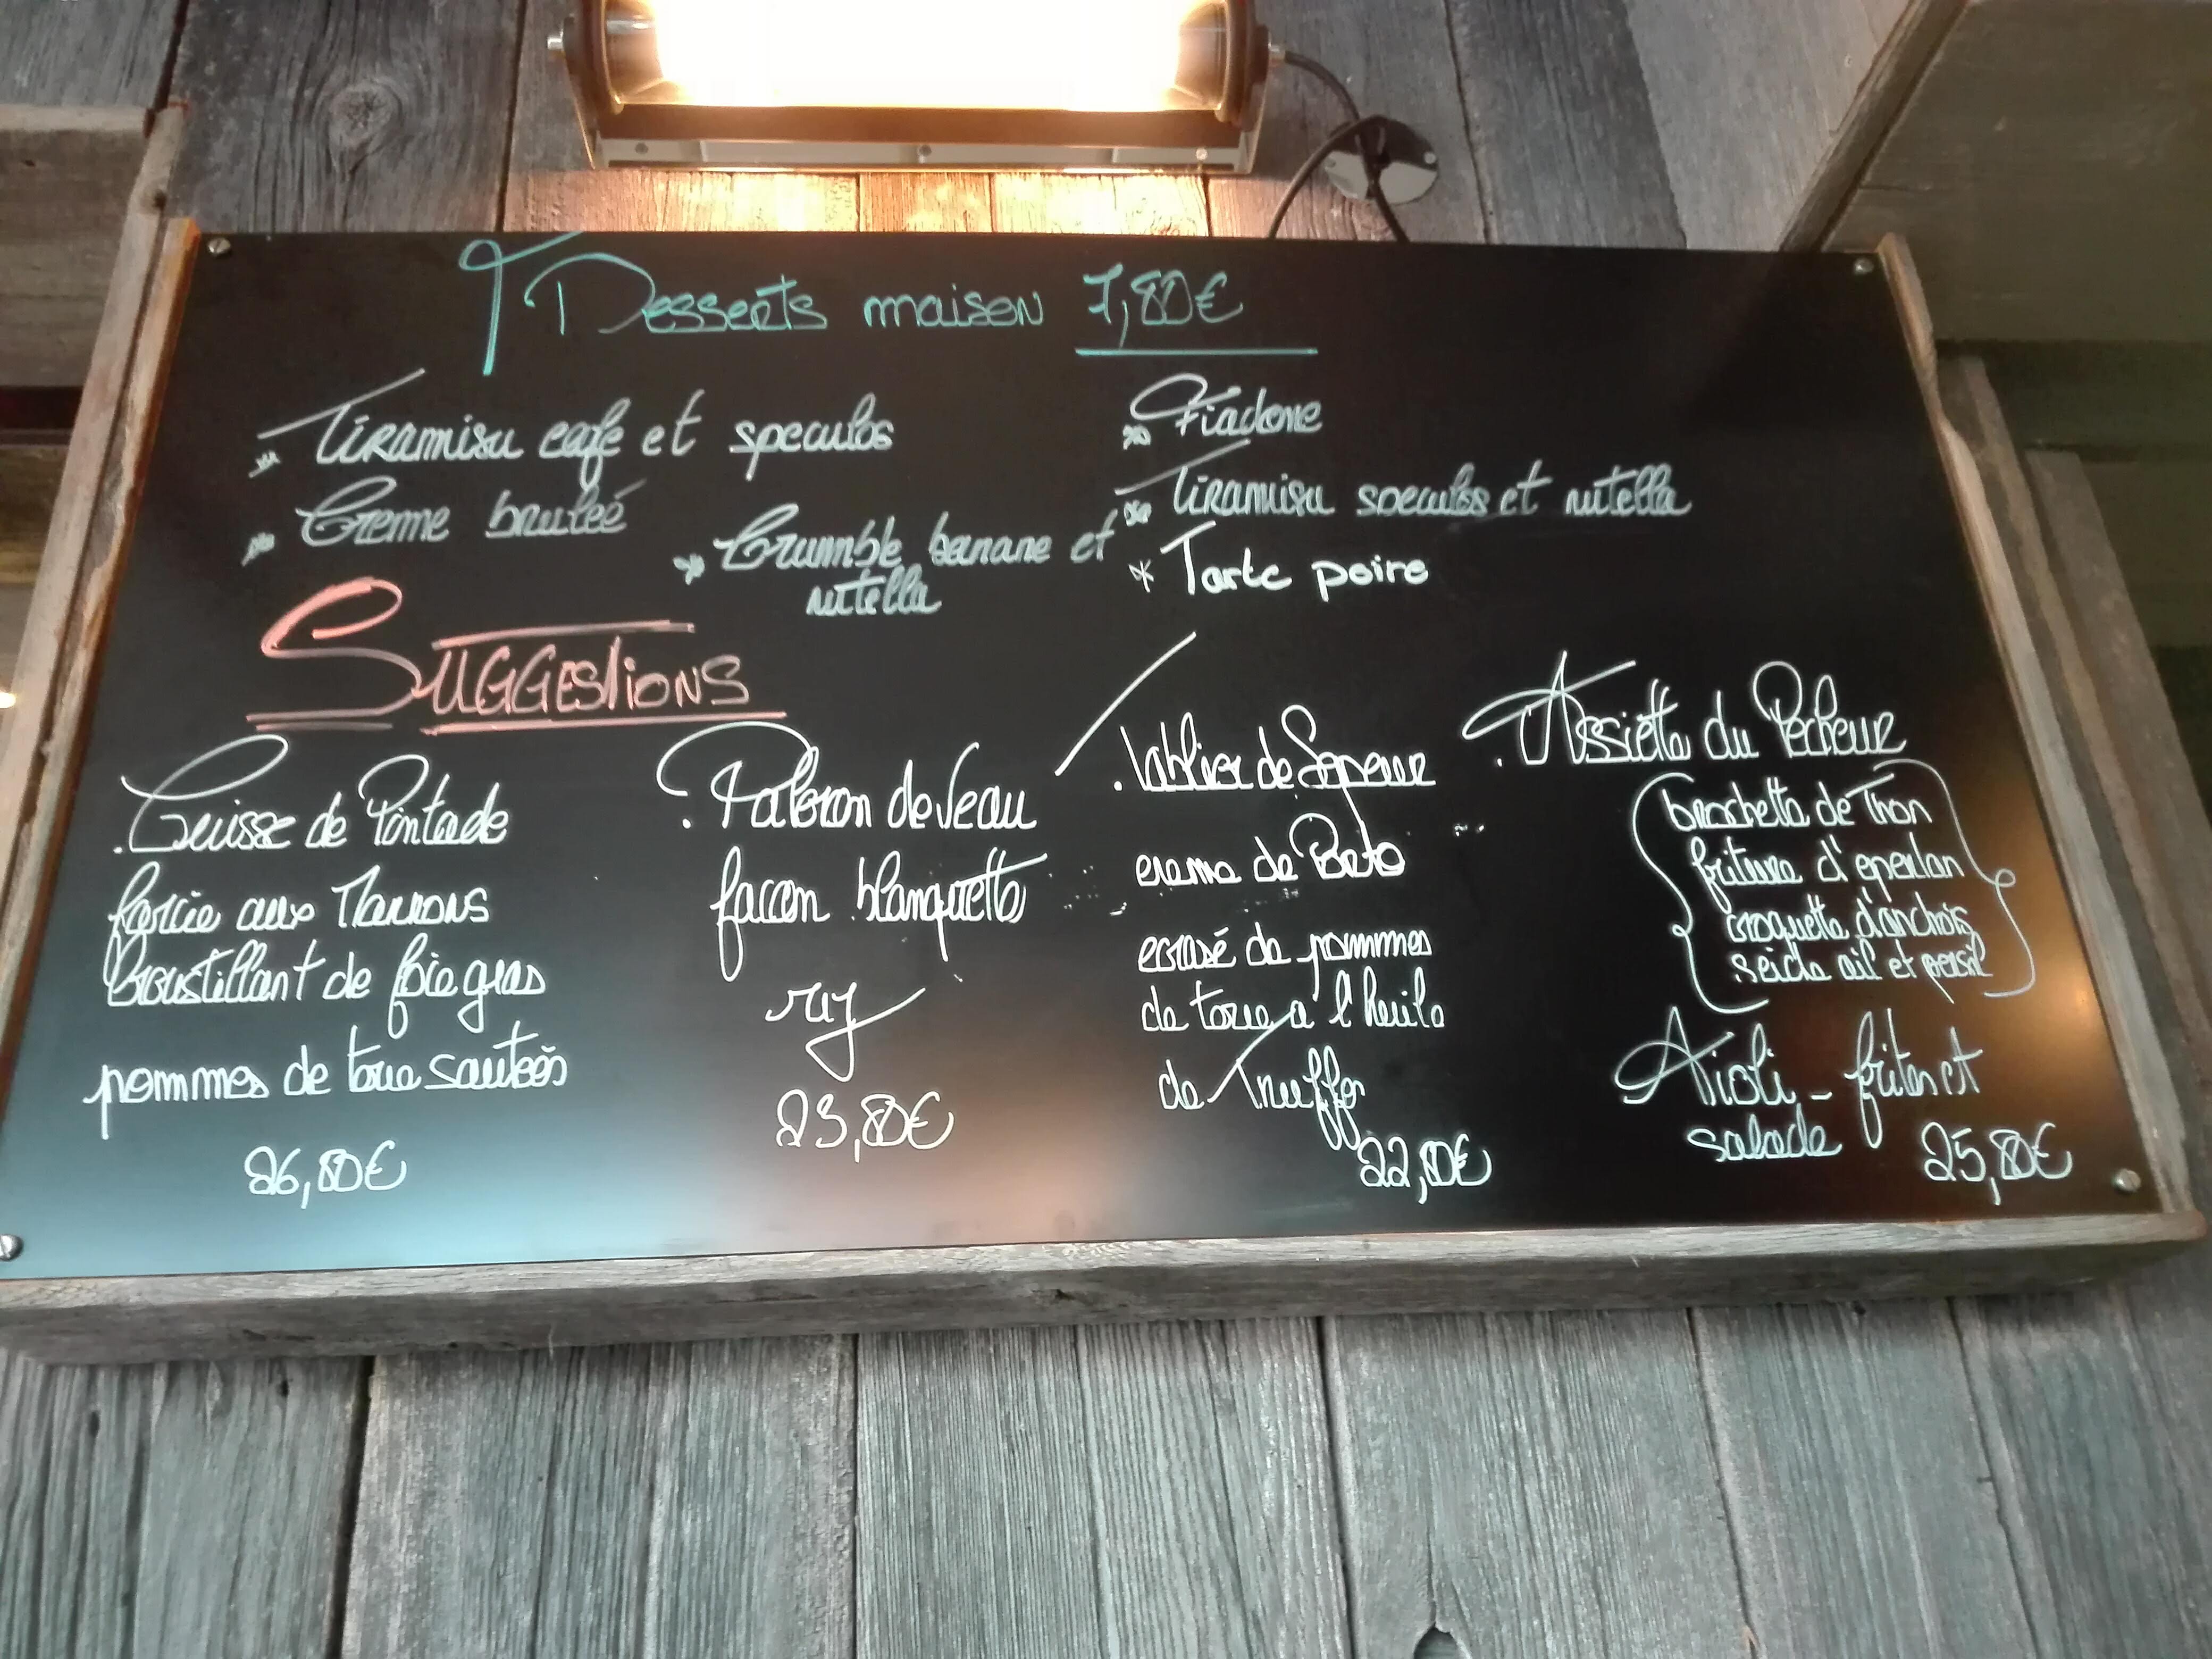 Desserts maison 7,80€
* Tiramisu café et speculos
* Creme bruleé
* Crumble banane et
nutella
* Fiadone
* Tiramisu speculos et nutella
* Tarte poire
SUGGESTIONS
. Cuisse de Pintade
farcie aux Marrons
Croustillant de foie gras
pommes de terre sautées
26,80€
. Paleron de Veau
facon blanquette
riz
23,80€
. Tablier de Sapeur
creme de Porto
ecrasé de pommes
de terre a l'huile
de Truffe
22,80€
. Assiette du Pecheur
brochette de Thon
friture d'eperlan
croquette d'anchois
seiche ail et persil
Aioli - frites et
salade 25,80€